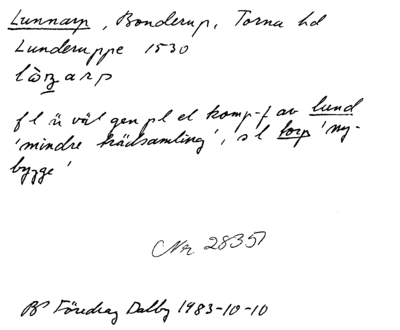 Lunnarp, Bonderup, Torna hd
Lunderuppe 1530
fl är väl gen pl el komp-f av lund
'mindre trädsamling', sl torp 'ny-
bygge'
Nr 2835
Föredrag Dalby 1983-10-10